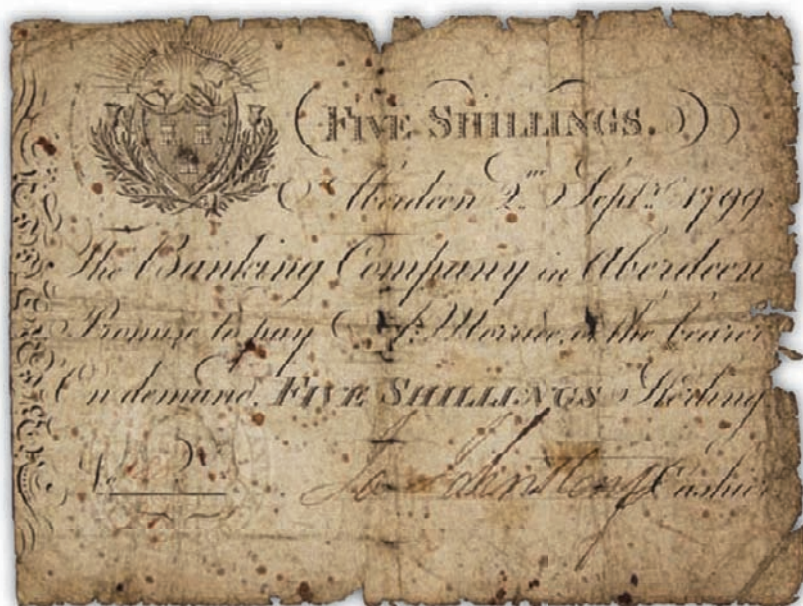 FIVE SHILLINGS.
Aberdeen 2nd Sept. 1799
The Banking Company in Aberdeen
Promise to pay or the bearer
On demand, FIVE SHILLINGS Sterling
No Cashier